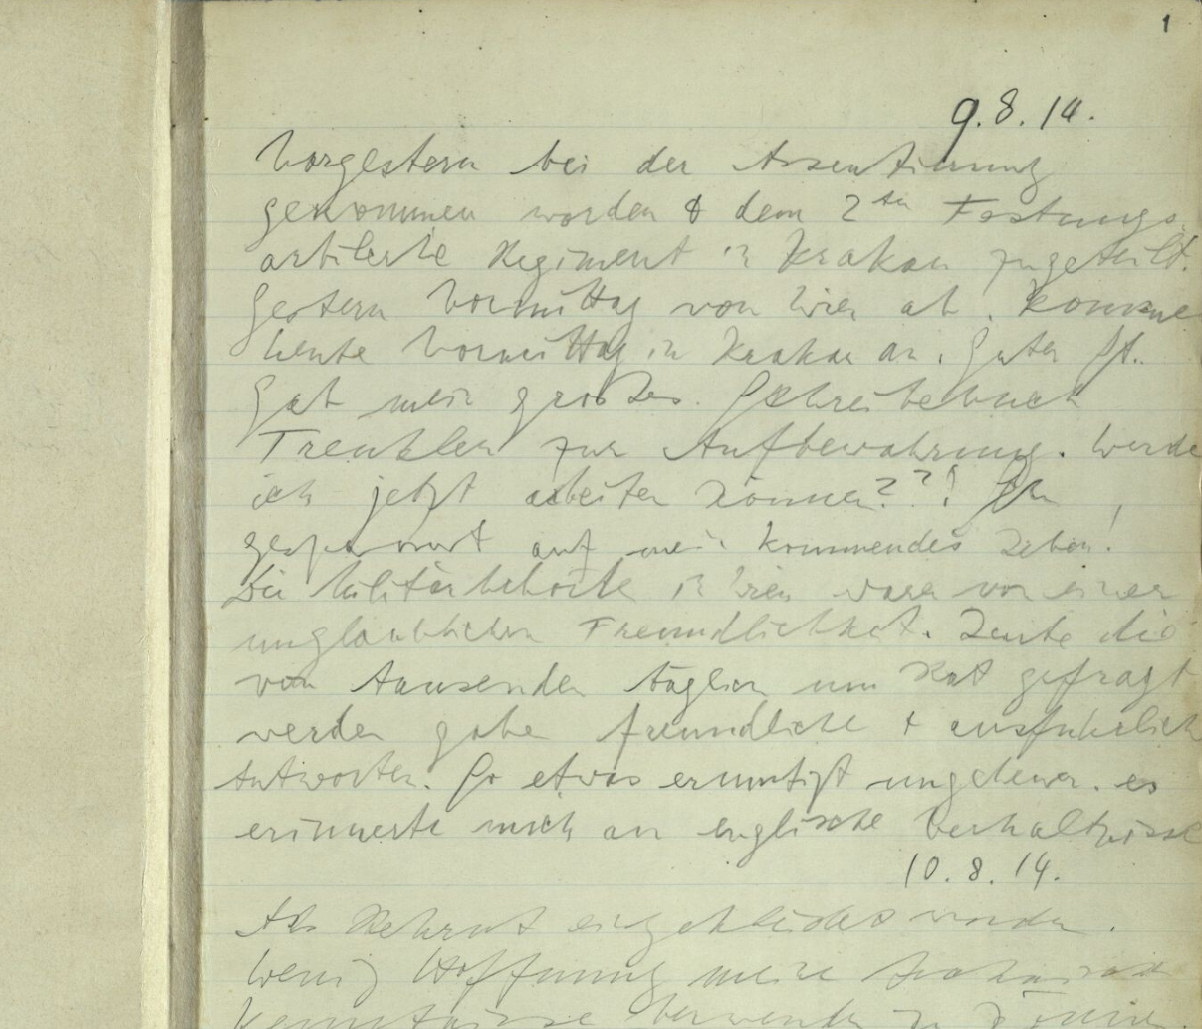 1
9.8.14.
Vorgestern bei der Assentierung
genommen worden & dem 2ten Festungs
artillerie Regiment in Krakau zugeteilt.
Gestern Vormittag von Wien ab. Komme
heute Vormittag in Krakau an. Guter St.
Gab mein großes Schreibebuch
Trenkler zur Aufbewahrung. Werde
ich jetzt arbeiten können??! Bin
gespannt auf mein kommendes Leben!
Die Militärbehörde in Wien waren von einer
unglaublichen Freundlichkeit. Leute die
von tausenden täglich um Rat gefragt
werden gaben freundliche & ausführliche
Antworten. So etwas ermutigt ungeheuer. es
erinnerte mich an englische Verhältnisse
10.8.14.
Als Rekrut eingekleidet worden.
Wenig Hoffnung meine
Kenntnisse verwenden zu können